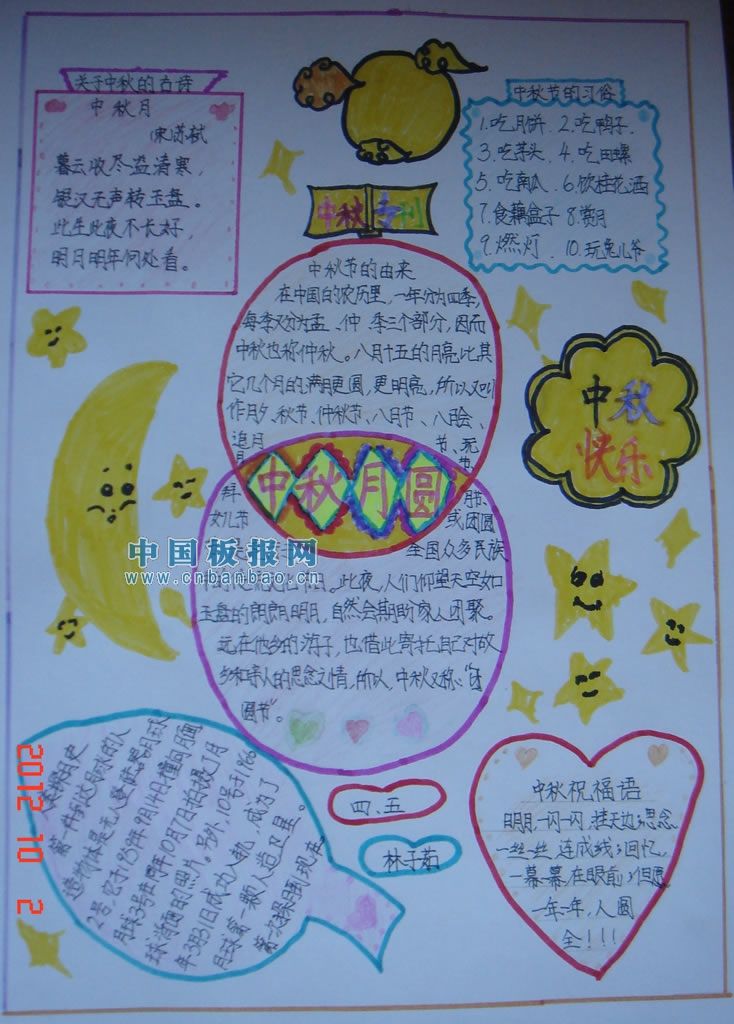 关于中秋的古诗
中秋月
宋 苏轼
暮云收尽溢清寒，
银汉无声转玉盘。
此生此夜不长好，
明月明年何处看。
中秋节的习俗
1.吃月饼 2.吃鸭子.
3.吃芋头 4.吃田螺
5.吃南瓜 6.饮桂花酒
7.食藕盒子 8.赏月
9.燃灯 10.玩兔儿爷
中秋专刊
中秋节的由来
在中国的农历里，一年分为四季，
每季又分为孟、仲、季三个部分，因而
中秋也称仲秋。八月十五的月亮比其
它几个月的满月更圆，更明亮，所以又叫
作月夕、秋节、仲秋节、八月节、八月会、
追月 节、玩
月 节、
拜 月节、
女儿节 或团圆
全国众多民族
中秋月圆
此夜，人们仰望天空如
玉盘的朗朗明月，自然会期盼家人团聚。
远在他乡的游子，也借此寄托自己对故
乡和亲人的思念之情，所以，中秋又称“团
圆节”。
中秋
快乐
中国板报网
www.cnbanbao.cn
探月史
第一件到达月球的人
造物体是无人登陆器月球
2号，它于1959年9月14日撞向月面
月球3号在同年10月7日拍摄了月
球背面的照片。另外，10号于1966
年3月31日成功入轨，成为了
月球第一颗人造卫星。
四、五
林子茹
中秋祝福语
明月，一闪一闪，挂天边；思念
一丝一丝，连成线；回忆，
一幕一幕，在眼前；但愿
一年一年，人圆
全！！！
2012 10 2